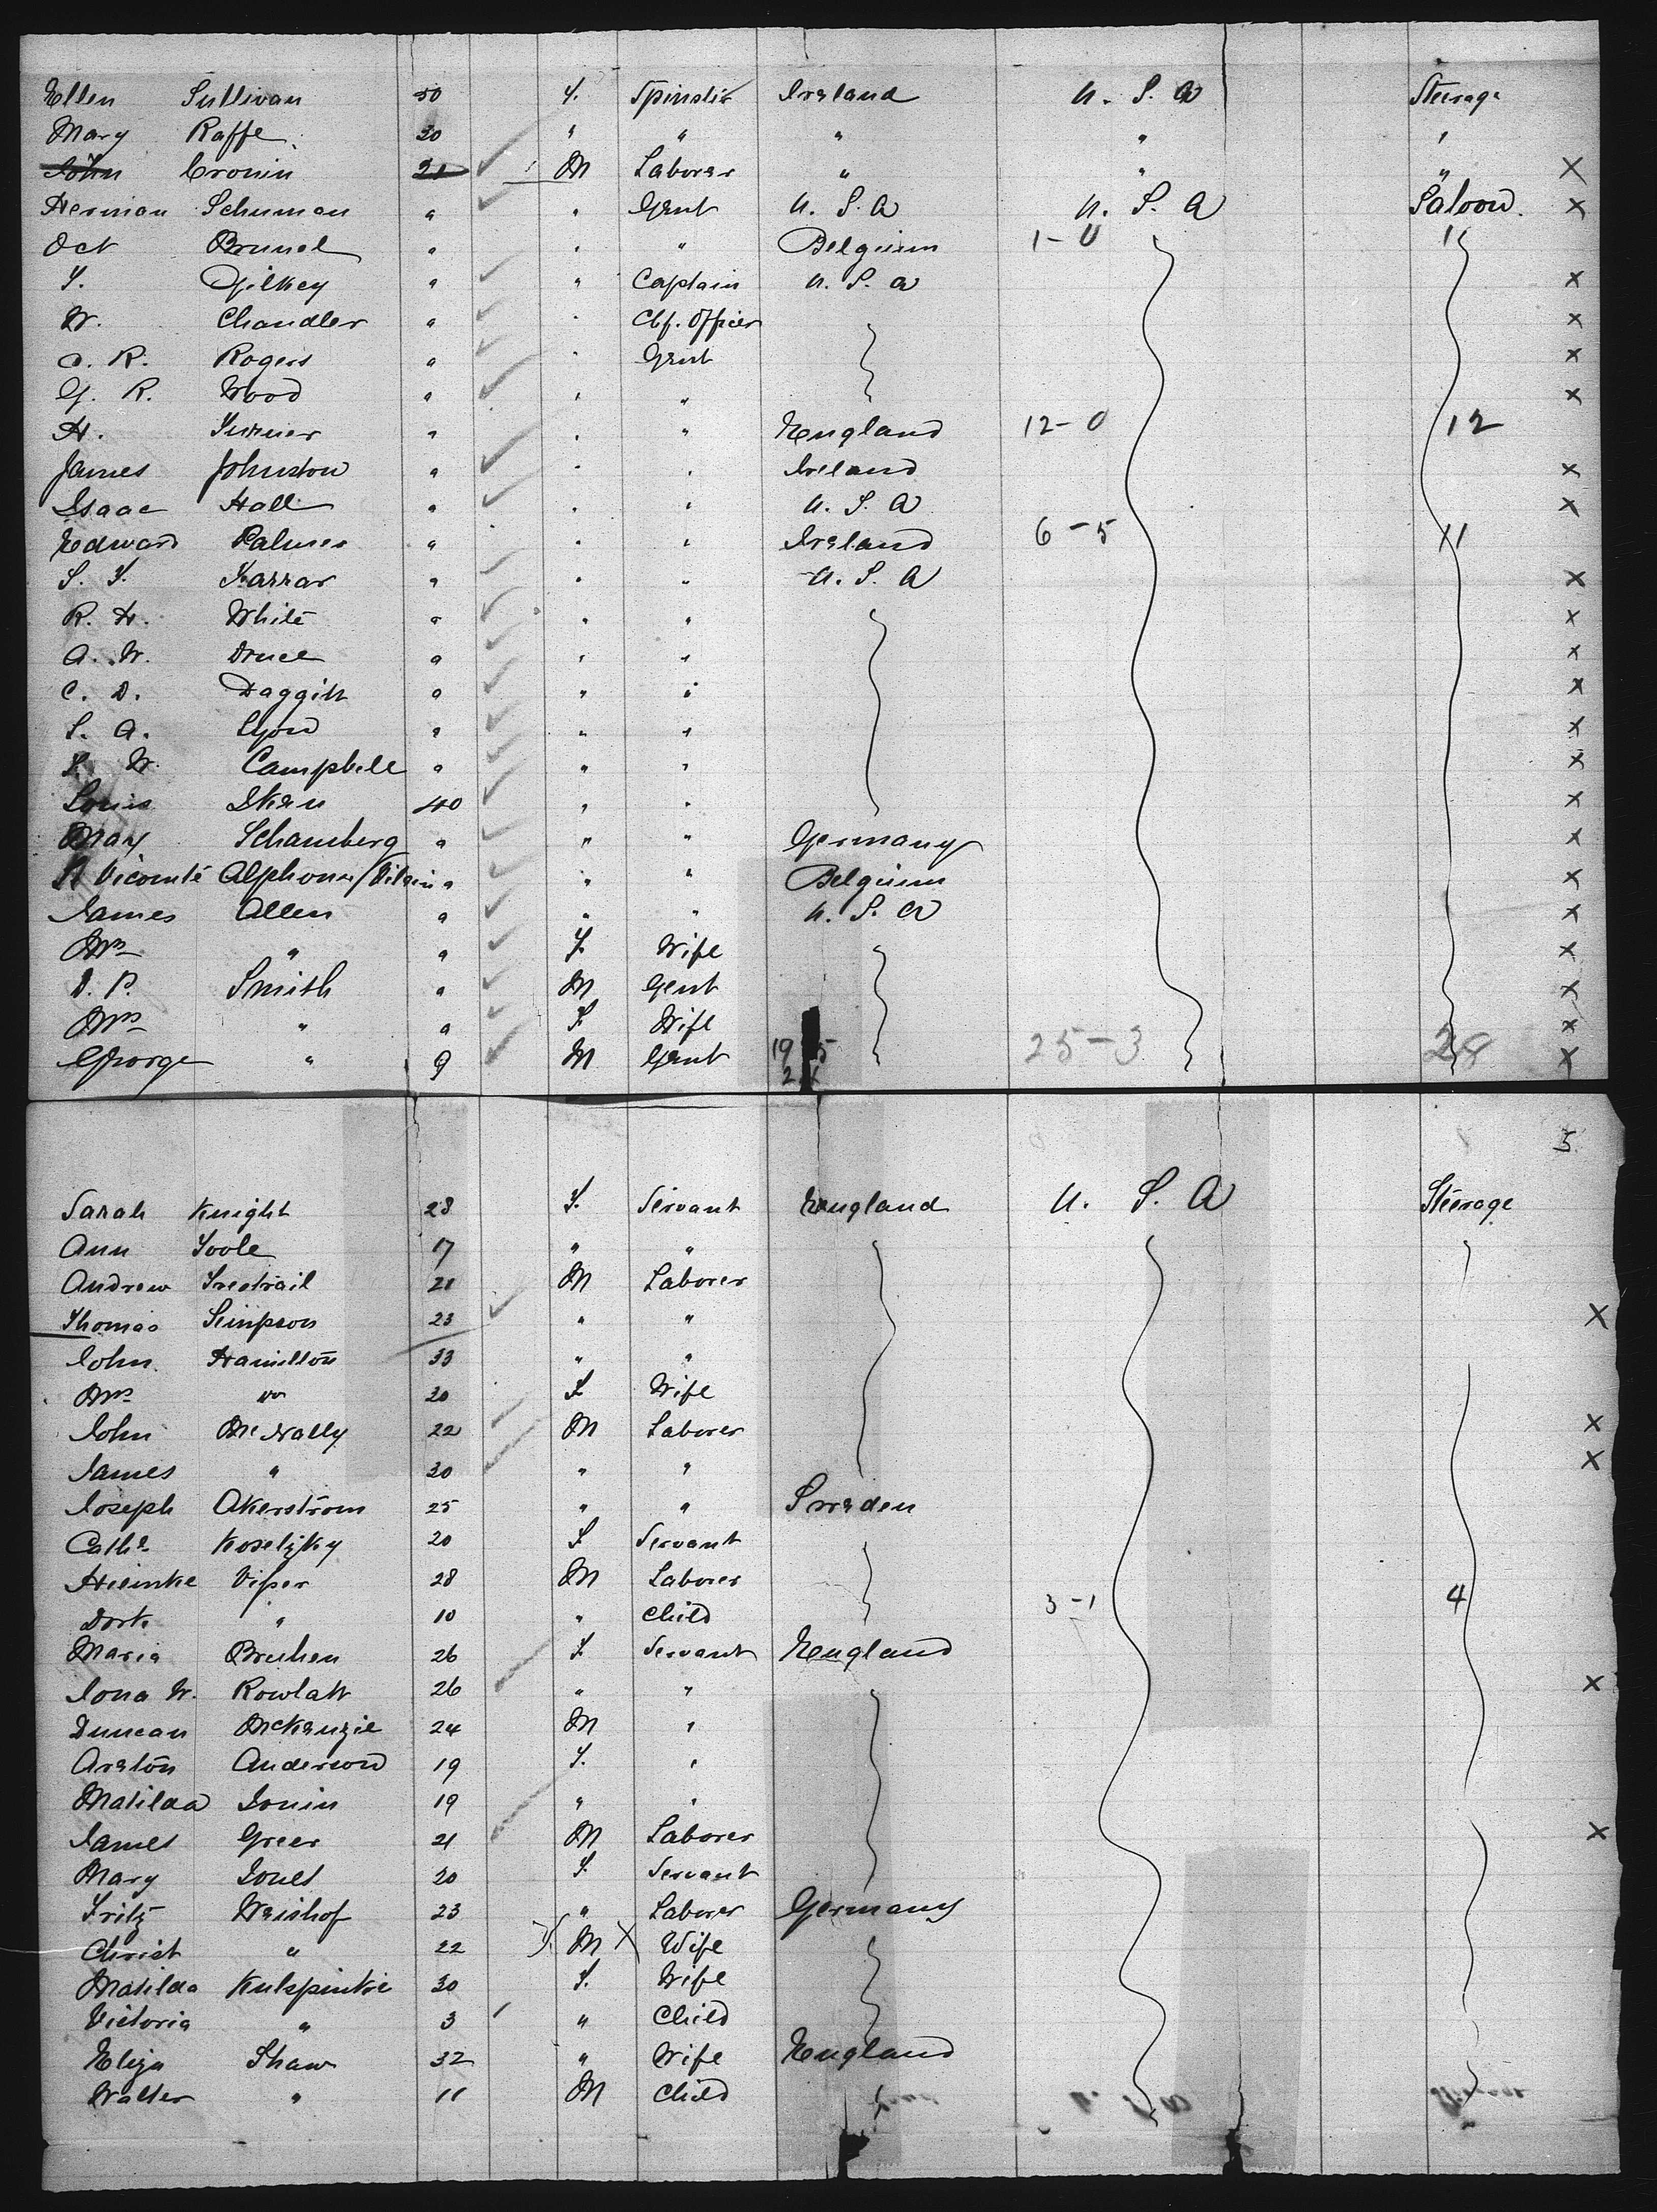 Ellen Sullivan 50 F. Spinster Ireland U. S. A Steerage
Mary Raffe 20 " " " " "
John Cronin 21 M Laborer " " " X
Herman Schuman " " Gent U. S. A U. S. A Saloon. X
Oct Brunel " " " Belgium 1-0 1
F. Gilkey " " Captain U. S. A X
W. Chandler " " Chf. Officer X
A. R. Rogers " " Gent X
G. R. Wood " " " X
H. Turner " " " England 12-0 12
James Johnston " " " Ireland X
Isaac Hall " " " U. S. A X
Edward Palmer " " " Ireland 6-5 11
S. F. Farrar " " " U. S. A X
R. H. White " " " X
A. W. Druce " " " X
C. D. Daggitt " " " X
S. A. Lyon " " " X
S. W. Campbell " " " X
Louis Stern 40 " " X
Max Schamberg " " " Germany X
Vicomte Alphonse/Vilain " " " Belgium X
James Allen " " " U. S. A X
Mrs " " F. Wife X
D. P. Smith " M Gent X
Mrs " " F Wife X
George " 9 M Gent 25-3 28 X
5
Sarah Knight 28 F. Servant England U. S. A Steerage
Ann Toole 17 " "
Andrew Tredrail 21 M Laborer
Thomas Simpson 23 " " X
John Hamilton 33 " "
Mrs " 20 F Wife
John McNally 22 M Laborer X
James " 30 " " X
Joseph Akerstrom 25 " " Sweden
Cathe Koseljky 20 F Servant
Heinke Viper 28 M Laborer
Dork " 10 " Child 3-1 4
Maria Bruhen 26 F Servant England
Iona W. Rowlatt 26 " " X
Duncan McKenzie 24 M "
Areton Anderson 19 F. "
Matilda Jonin 19 " "
James Greer 21 M Laborer X
Mary Jones 20 F. Servant
Fritz Weishof 23 " Laborer Germany
Christ " 22 F. M X Wife
Matilda Kulspinkie 30 F. Wife
Victoria " 3 " Child
Eliza Shaw 32 " Wife England
Walter " 11 M Child